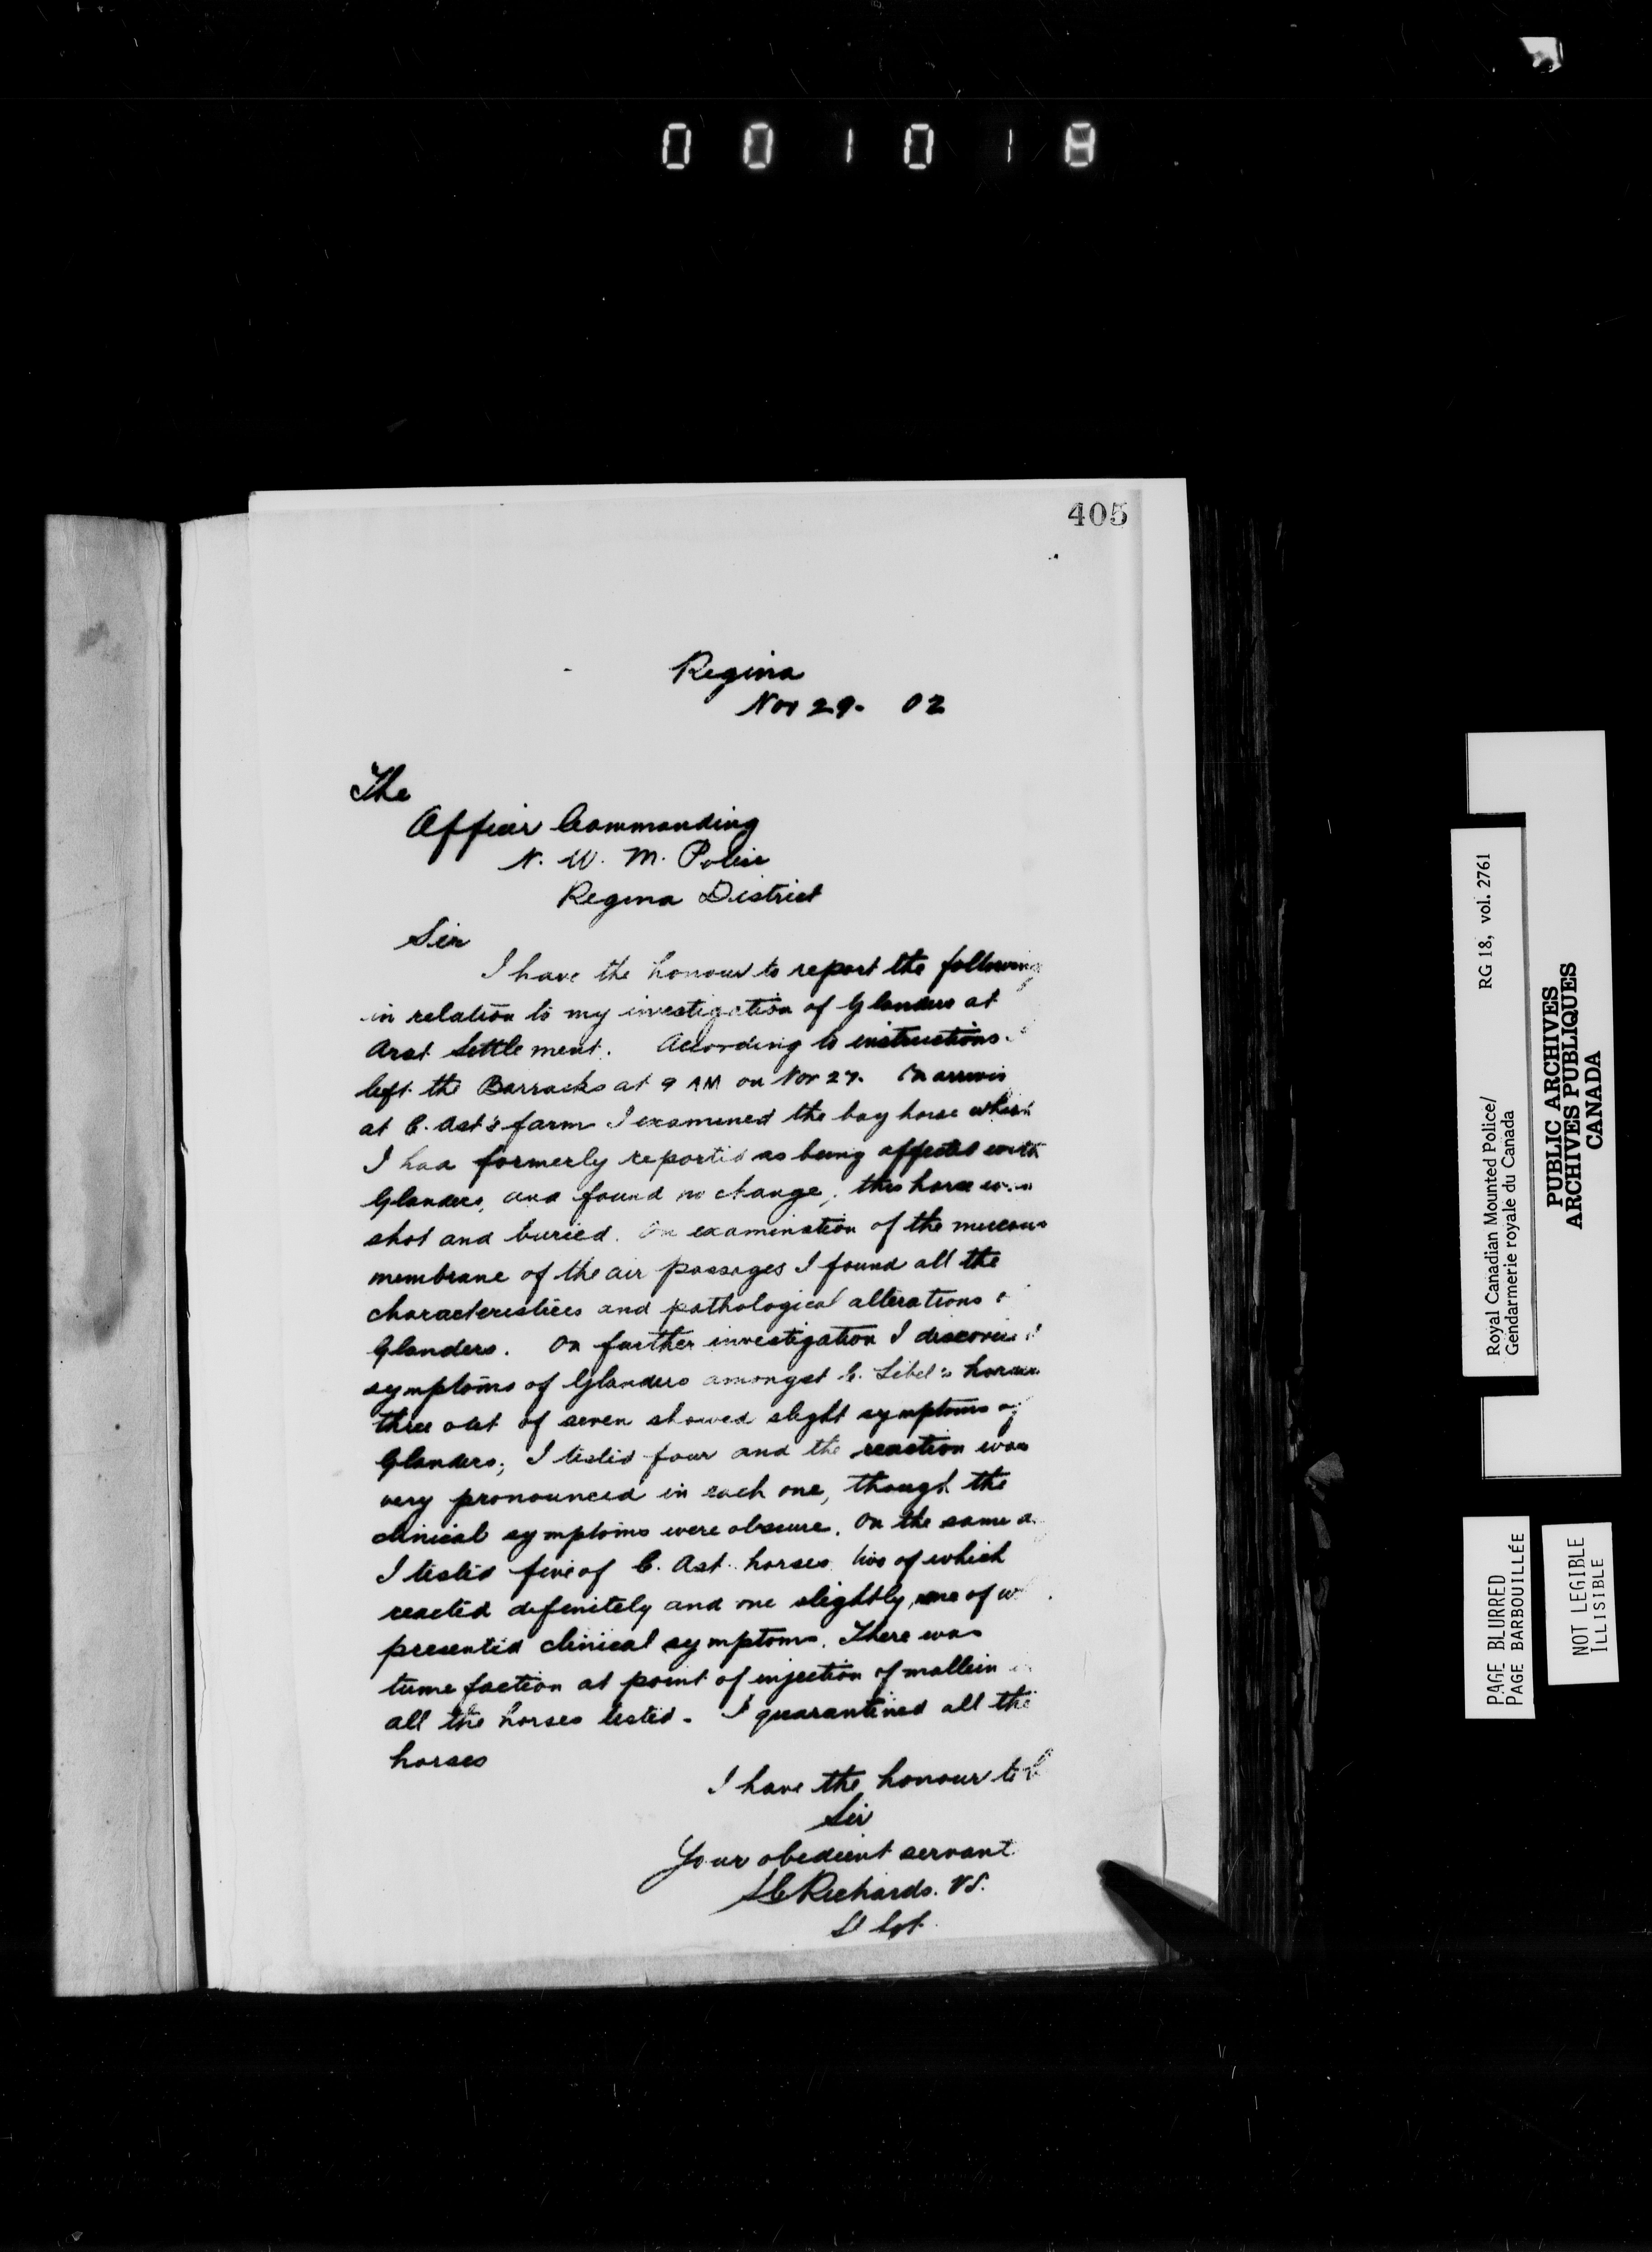 001018
405
Regina
Nov 29. 02
The
Officer Commanding
N. W. M. Police
Regina District
Sir
I have the honour to report the following
in relation to my investigation of Glanders at
Arat Settlement. According to instructions
left the Barracks at 9 AM on Nov 27. On
at C. Ast's farm I examined the bay horse which
I had formerly reported as being affected with
Glanders, and found no change, this horse was
shot and buried. On examination of the mucous
membrane of the air passages I found all the
characteristics and pathological alterations
Glanders. On further investigation I discovered
symptoms of Glanders amongst horses
three out of seven showed slight symptoms of
Glanders; I tested four and the reaction was
very pronounced in each one, though the
clinical symptoms were obscure. On the same
I tested five of C. Ast horses two of which
reacted definitely and one slightly, none of
presented clinical symptoms. There was
tumefaction at point of injection of mallein
all the horses tested. I quarantined all the
horses
I have the honour to
Sir
Your obedient servant
Richards. VS.
Royal Canadian Mounted Police/ RG 18, vol. 2761
Gendarmerie royale du Canada
PUBLIC ARCHIVES
ARCHIVES PUBLIQUES
CANADA
PAGE BLURRED
PAGE BARBOUILLÉE
NOT LEGIBLE
ILLISIBLE